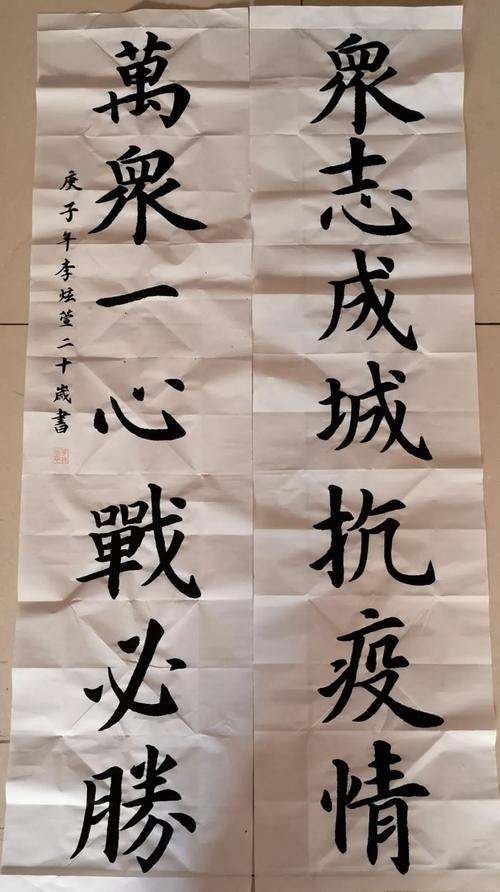 眾志成城抗疫情
萬眾一心戰必勝
庚子年李炫萱二十歲書